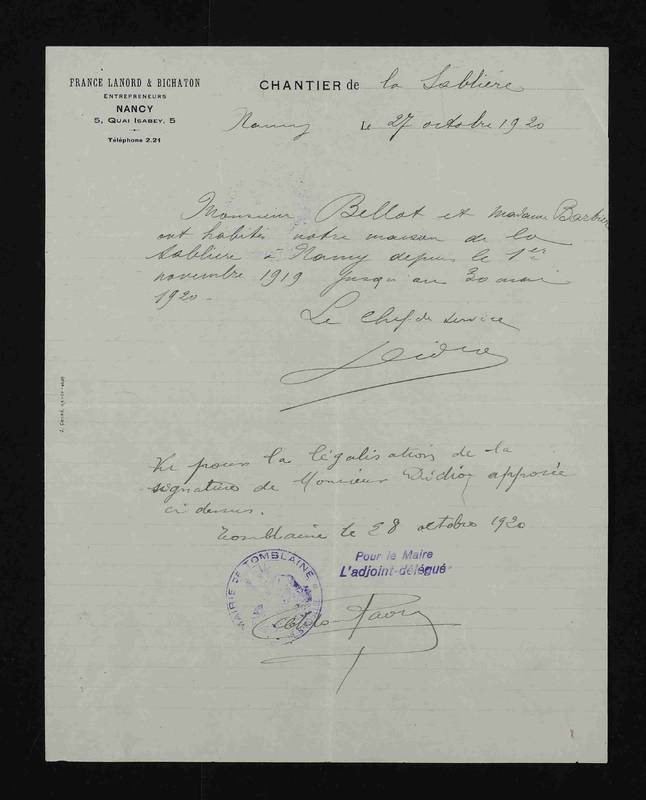 FRANCE LANORD & BICHATON
ENTREPRENEURS
NANCY
5, QUAI ISABEY, 5
Téléphone 2.21
CHANTIER de la Sablière
Nancy Le 27 octobre 1920
Monsieur Bellot et madame Barbier
ont habités notre maison de la
Sablière à Nancy depuis le 1er
novembre 1919 jusqu'au 30 mai
1920.
Le Chef de service
Vu pour la légalisation de la
signature de Monsieur apposée
ci dessus.
Tomblaine le 28 octobre 1920
Pour le Maire
L'adjoint-délégué
MAIRIE DE TOMBLAINE